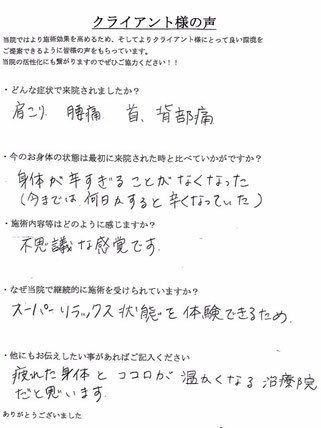 クライアント様の声
当院ではより施術効果を高めるため、そしてよりクライアント様にとって良い環境を
ご提案できるように皆様の声をもらっています。
当院の活性化にも繋がりますのでぜひご協力ください！！
・どんな症状で来院されましたか？
肩こり 腰痛 首、背部痛
・今のお身体の状態は最初に来院された時と比べていかがですか？
身体が辛すぎることがなくなった
（今までは何日かすると辛くなっていた）
・施術内容等はどのように感じますか？
不思議な感覚です。
・なぜ当院で継続的に施術を受けられていますか？
スーパーリラックス状態を体験できるため。
・他にもお伝えしたい事があればご記入ください
疲れた身体とココロが温かくなる治療院
だと思います。
ありがとうございました